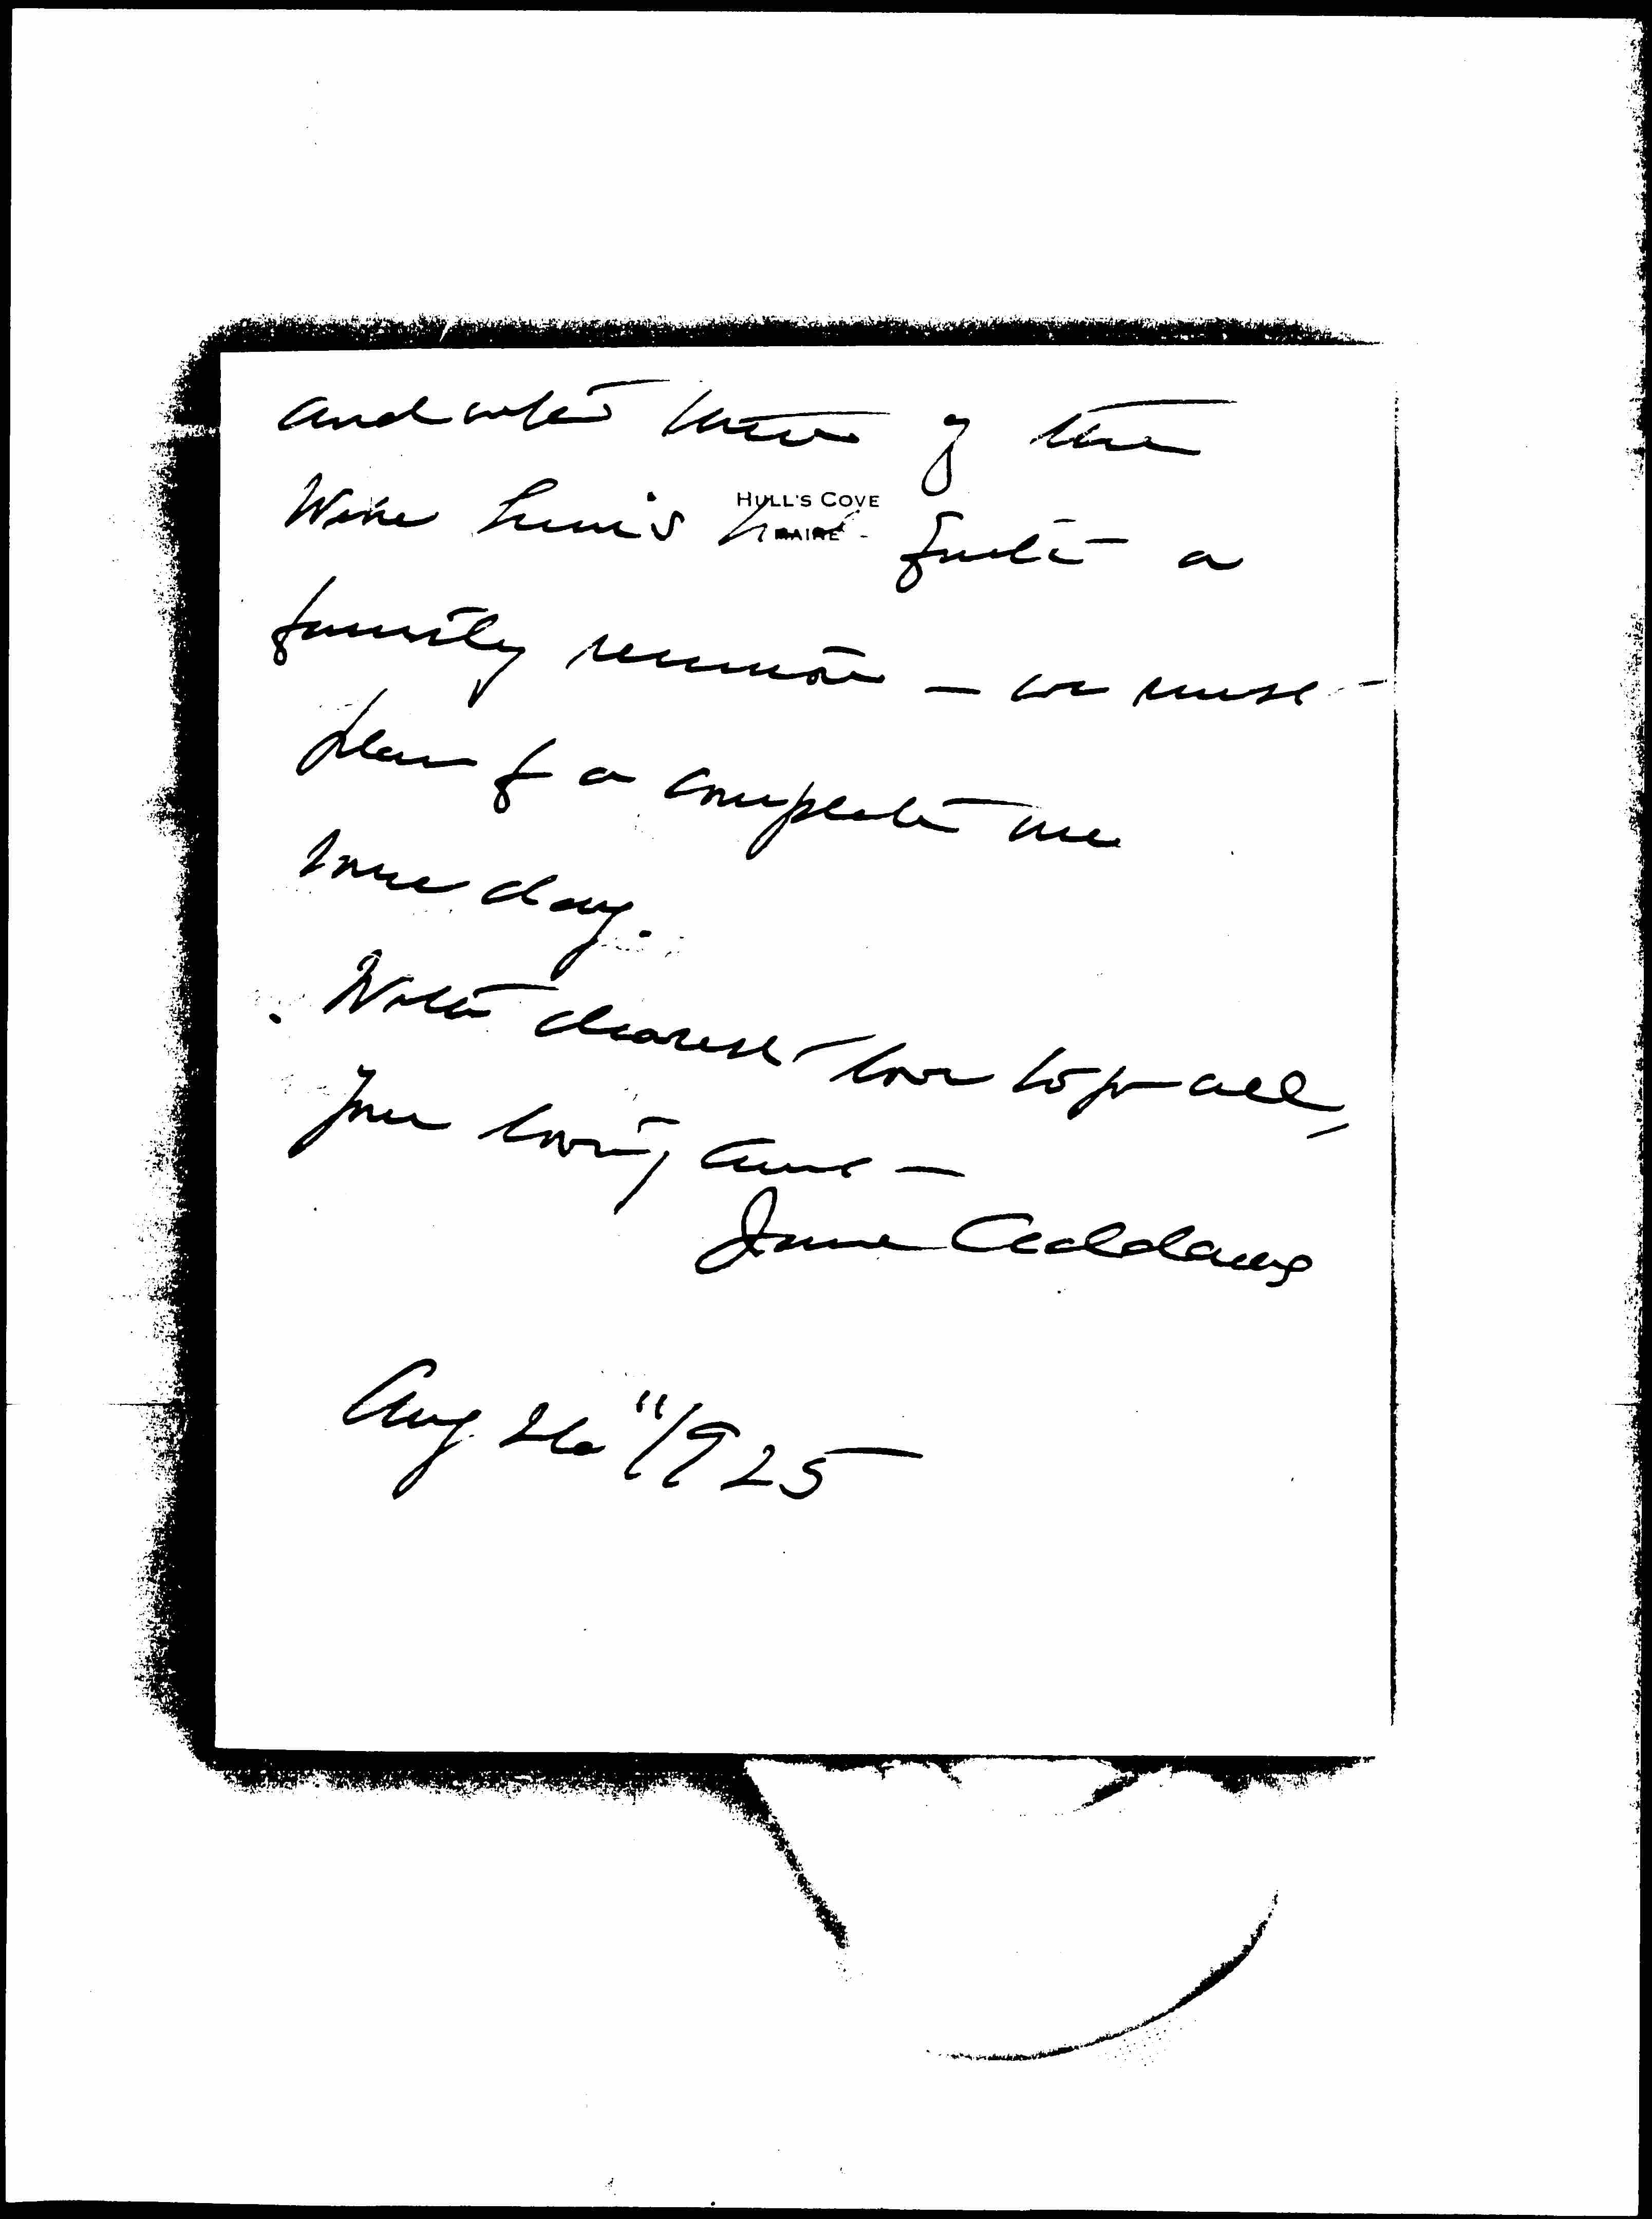 and with three of the
HULL'S COVE
MAINE
quite a
family reunion — we must
plan for a complete one
some day.
With dearest love to you all,
Your loving aunt —
Jane Addams
Aug 26" 1925